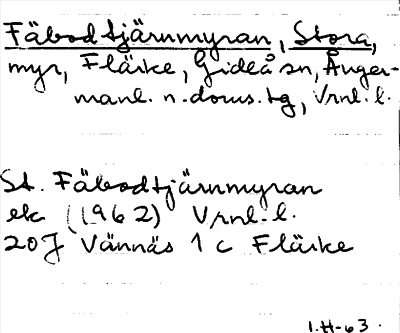 Fäbodtjärnmyran, Stora,
myr, Flärke, Gideå sn, Ånger-
manl. n. doms. tg, Vrnl. l.
St. Fäbodtjärnmyran
ek (1962) Vrnl. l.
20J Vännäs 1 c Flärke
I.H-63.